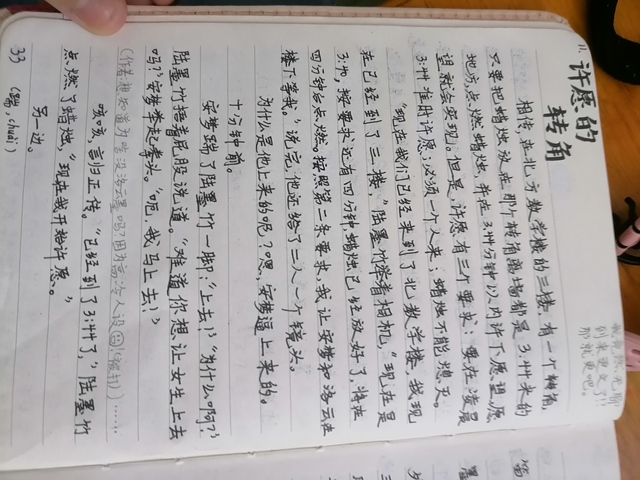 11.许愿的
转角
相传，在北方教学楼的三楼，有一个转角，
只要把蜡烛放在那个转角离墙都是3.44米的
地方，点燃蜡烛，并在3.44分钟以内许下愿望，愿
望就会实现。但是，许愿有三个要求：要在凌晨
3:44准时许愿；必须一个人来；蜡烛不能熄灭。
“现在我们已经来到了北教学楼，我现
在已经到了三楼，”陆墨竹举着相机，“现在是
3:40，按要求还有四分钟，蜡烛已经放好了，将在
四分钟后点燃。按照第二条要求，我让安梦和洛云在
楼下等我。”说完，他还给了二人一个镜头。
为什么是他上来的呢？嗯，安梦逼上来的。
十分钟前。
安梦踹了陆墨竹一脚：“上去！”“为什么啊？”
陆墨竹捂着屁股说道。“难道你想让女生上去
吗？”安梦举起拳头。“呃，我马上去！”
咳咳，言归正传。“已经到了3:44了，”陆墨竹
点燃了蜡烛，“现在我开始许愿。”
另一边。
33 (踹，chuài)